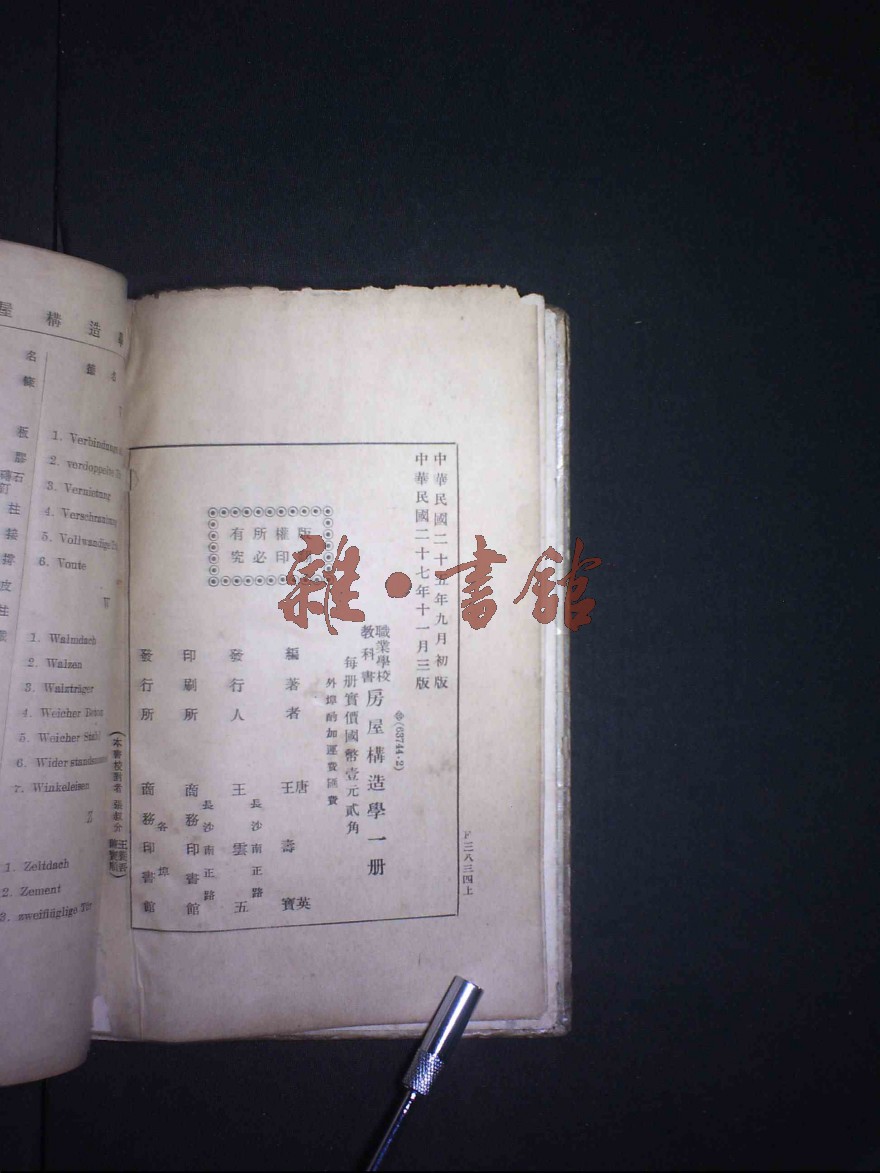 中華民國二十五年九月初版
中華民國二十七年十一月三版
F三八三四上
(63744·2)
職業學校
教科書
房屋構造學一册
每册實價國幣壹元貳角
外埠酌加運費匯費
版
權印
所必
有究
編著者 唐英
王壽寶
發行人 王雲五
長沙南正路
印刷所 商務印書館
長沙南正路
發行所 商務印書館
各埠
屋構造學
名稱
1. Verbindungs
2. verdoppelte
3. Vernietung
4. Verschraubung
5. Vollwandige
6. Voute
W
1. Walmdach
2. Walzen
3. Walzträger
4. Weicher
5. Weicher Stahl
6. Widerstandsmoment
7. Winkeleisen
Z
1. Zeltdach
2. Zement
3. zweiflüglige Tür
雜·書館